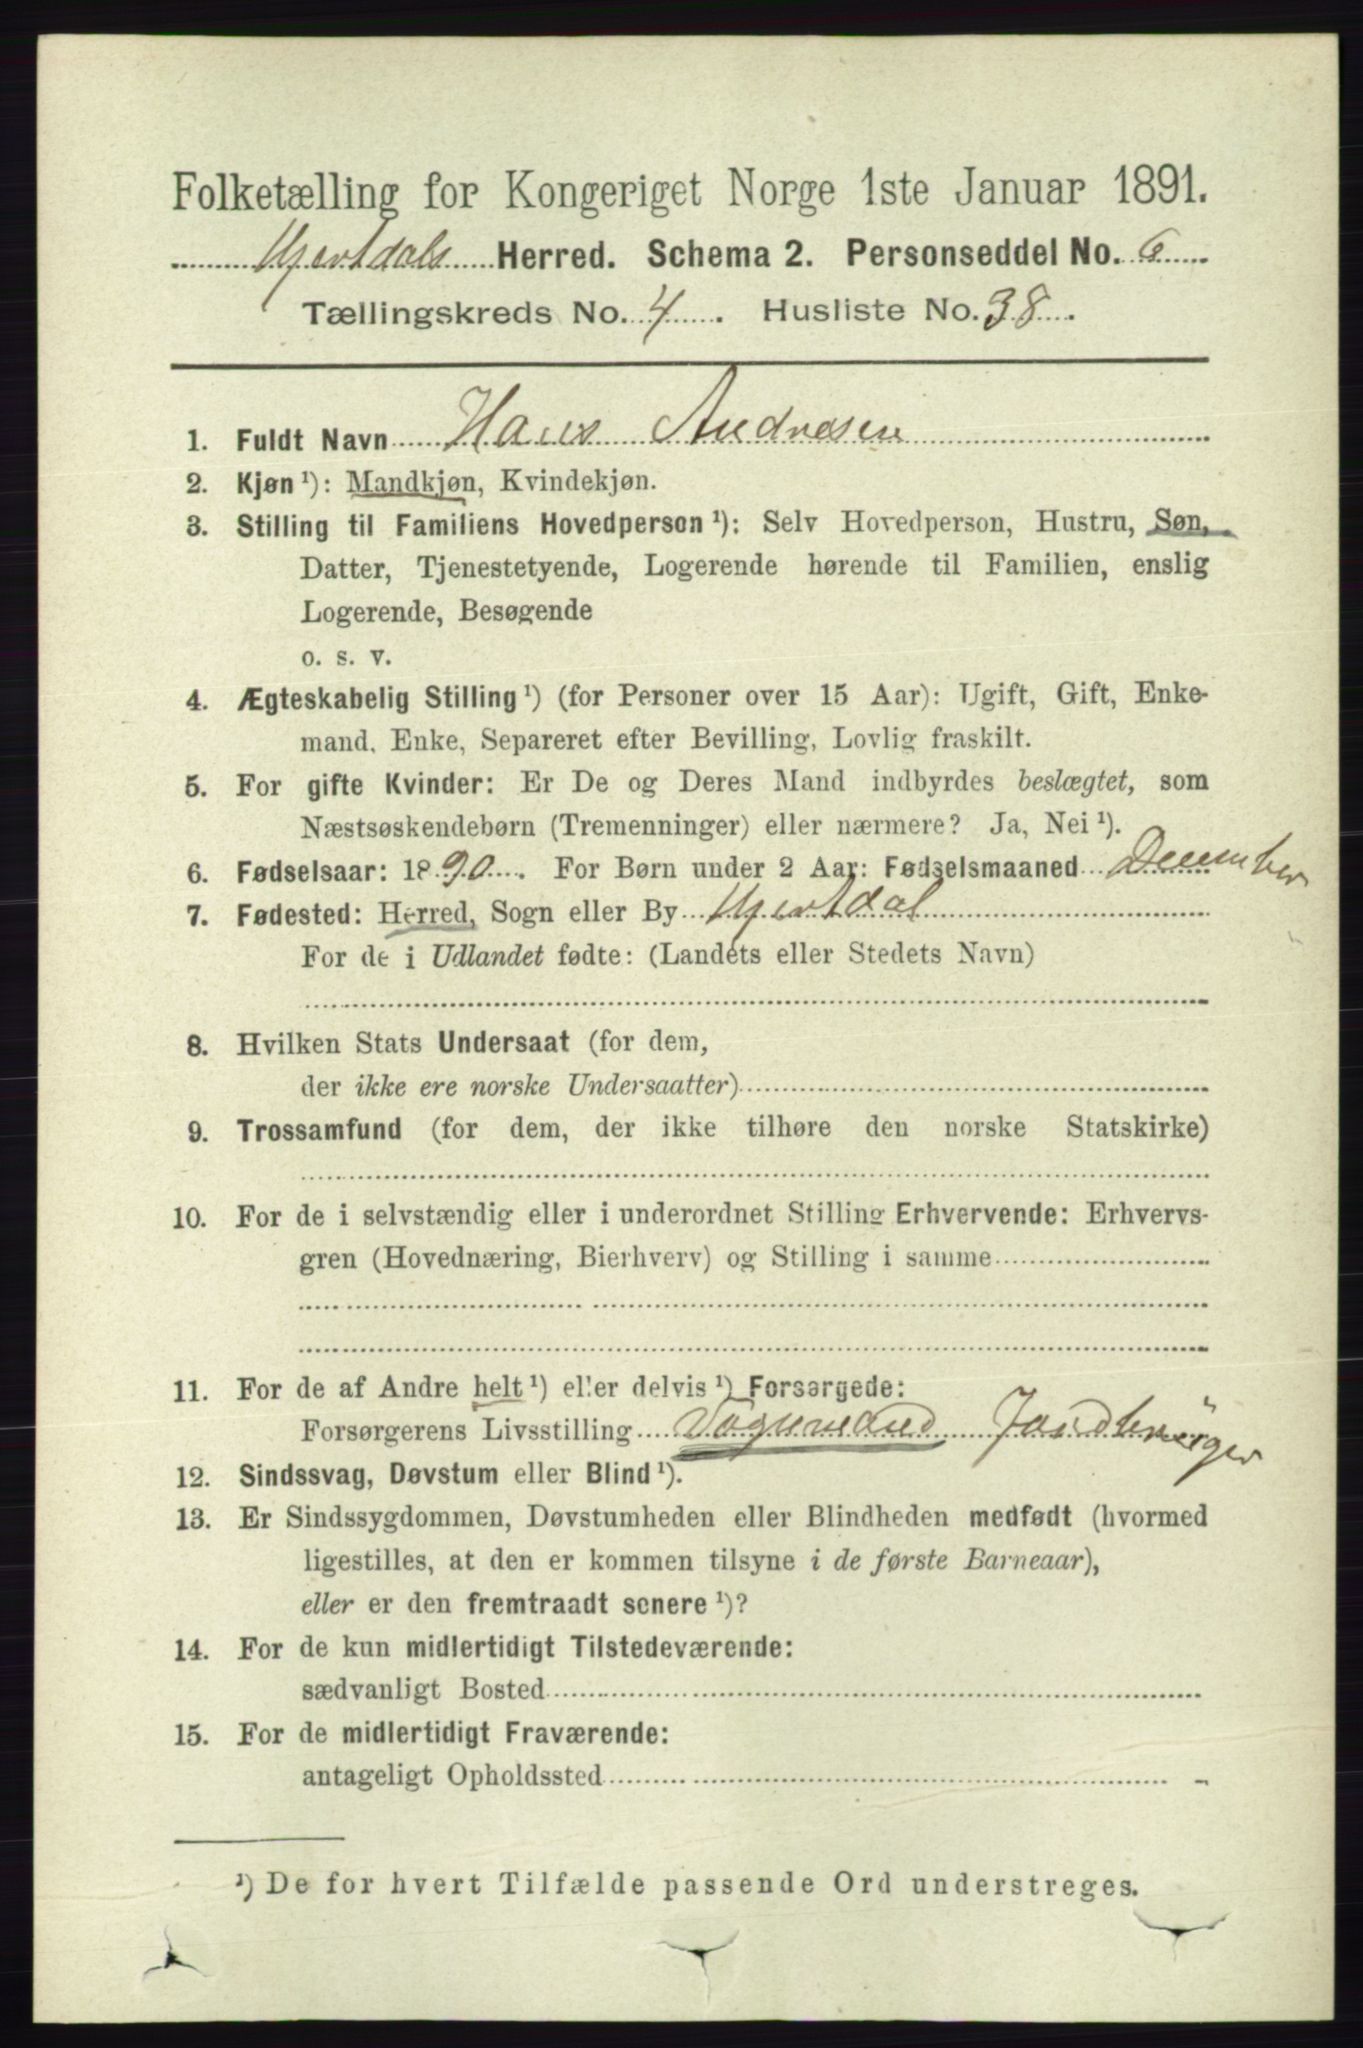 Folketælling for Kongeriget Norge 1ste Januar 1891.
Hjertdals Herred. Schema 2. Personseddel No. 6
Tællingskreds No. 4. Husliste No. 38.
1. Fuldt Navn Hans Andresen
2. Kjøn ¹): Mandkjøn, Kvindekjøn.
3. Stilling til Familiens Hovedperson ¹): Selv Hovedperson, Hustru, Søn,
Datter, Tjenestetyende, Logerende hørende til Familien, enslig
Logerende, Besøgende
o. s. v.
4. Ægteskabelig Stilling ¹) (for Personer over 15 Aar): Ugift, Gift, Enke-
mand, Enke, Separeret efter Bevilling, Lovlig fraskilt.
5. For gifte Kvinder: Er De og Deres Mand indbyrdes beslægtet, som
Næstsøskendebørn (Tremenninger) eller nærmere? Ja, Nei ¹).
6. Fødselsaar: 1890. For Børn under 2 Aar: Fødselsmaaned December
7. Fødested: Herred, Sogn eller By Hjertdal
For de i Udlandet fødte: (Landets eller Stedets Navn)
8. Hvilken Stats Undersaat (for dem,
der ikke ere norske Undersaatter)
9. Trossamfund (for dem, der ikke tilhøre den norske Statskirke)
10. For de i selvstændig eller i underordnet Stilling Erhvervende: Erhvervs-
gren (Hovednæring, Bierhverv) og Stilling i samme
11. For de af Andre helt ¹) eller delvis ¹) Forsørgede:
Forsørgerens Livsstilling Jordbruger
12. Sindssvag, Døvstum eller Blind ¹).
13. Er Sindssygdommen, Døvstumheden eller Blindheden medfødt (hvormed
ligestilles, at den er kommen tilsyne i de første Barneaar),
eller er den fremtraadt senere ¹)?
14. For de kun midlertidigt Tilstedeværende:
sædvanligt Bosted
15. For de midlertidigt Fraværende:
antageligt Opholdssted
¹) De for hvert Tilfælde passende Ord understreges.